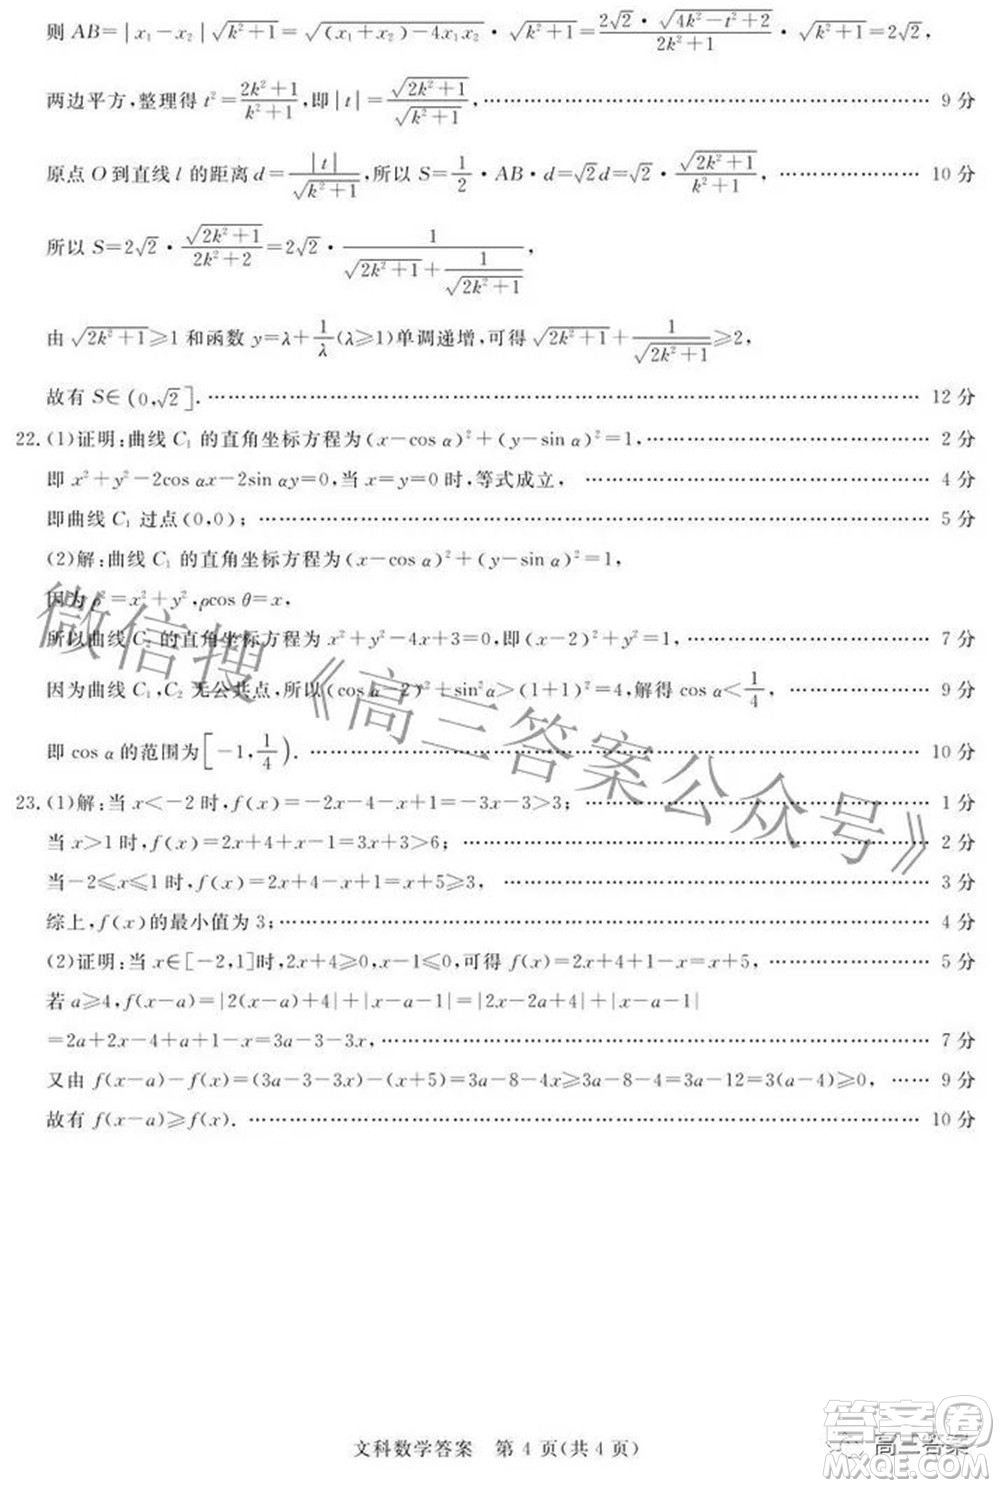 则 AB=|x₁-x₂|√(k²+1)=√((x₁+x₂)-4x₁x₂)·√(k²+1)=(2√2·√(4k²-t²+2))/(2k²+1)·√(k²+1)=2√2,
两边平方,整理得 t²=(2k²+1)/(k²+1),即|t|=√(2k²+1)/√(k²+1),……9 分
原点 O 到直线 l 的距离 d=|t|/√(k²+1),所以 S=1/2·AB·d=√2d=√2·√(2k²+1)/(k²+1),……10 分
所以 S=2√2·√(2k²+1)/(2k²+2)=2√2·1/(√(2k²+1)+1/√(2k²+1)),
由 √(2k²+1)≥1 和函数 y=λ+1/λ(λ≥1)单调递增,可得 √(2k²+1)+1/√(2k²+1)≥2,
故有 S∈(0,√2].……12 分
22.(1)证明:曲线 C₁ 的直角坐标方程为(x-cos α)²+(y-sin α)²=1,……2 分
即 x²+y²-2cos αx-2sin αy=0,当 x=y=0 时,等式成立,……4 分
即曲线 C₁ 过点(0,0);……5 分
(2)解:曲线 C₁ 的直角坐标方程为(x-cos α)²+(y-sin α)²=1,
因为 ρ²=x²+y²,ρcos θ=x,
所以曲线 C₂ 的直角坐标方程为 x²+y²-4x+3=0,即(x-2)²+y²=1,……7 分
因为曲线 C₁,C₂ 无公共点,所以(cos α-2)²+sin²α>(1+1)²=4,解得 cos α<1/4,……9 分
即 cos α 的范围为[-1,1/4).……10 分
23.(1)解:当 x<-2 时,f(x)=-2x-4-x+1=-3x-3>3;……1 分
当 x>1 时,f(x)=2x+4+x-1=3x+3>6;……2 分
当-2≤x≤1 时,f(x)=2x+4-x+1=x+5≥3,……3 分
综上,f(x)的最小值为 3;……4 分
(2)证明:当 x∈[-2,1]时,2x+4≥0,x-1≤0,可得 f(x)=2x+4-x+1=x+5,……5 分
若 a≥4,f(x-a)=|2(x-a)+4|+|x-a-1|=|2x-2a+4|+|x-a-1|
=2a+2x-4+a+1-x=3a-3-3x,……7 分
又由 f(x-a)-f(x)=(3a-3-3x)-(x+5)=3a-8-4x≥3a-8-4=3a-12=3(a-4)≥0,……9 分
故有 f(x-a)≥f(x).……10 分
微信搜《高三答案公众号》
文科数学答案 第 4 页(共 4 页)
答案卷
高三答案
MXQE.COM